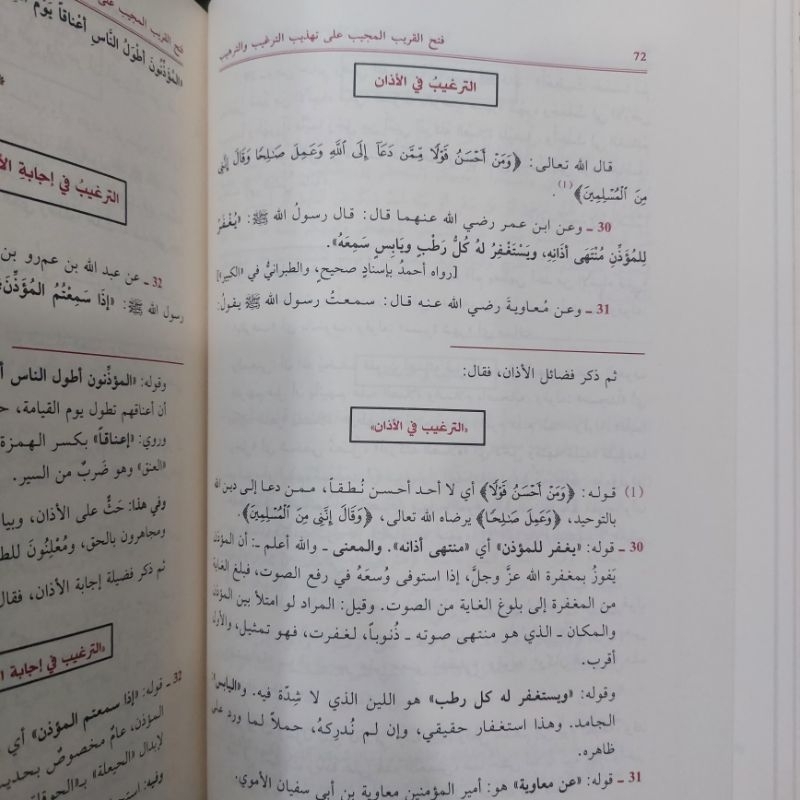 72
فتح القريب المجيب على تهذيب الترغيب والترهيب
الترغيبُ في الأذان
قال الله تعالى: ﴿وَمَنْ أَحْسَنُ قَوْلًا مِّمَّن دَعَآ إِلَى ٱللَّهِ وَعَمِلَ صَٰلِحًا وَقَالَ إِنَّنِي
مِنَ ٱلْمُسْلِمِينَ﴾(1).
30 ـ وعن ابن عمر رضي الله عنهما قال: قال رسولُ الله ﷺ: «يُغْفَرُ
لِلمُؤَذِّنِ مُنْتَهَى أذَانِهِ، ويَسْتَغْفِرُ لهُ كُلُّ رَطْبٍ ويَابِسٍ سَمِعَهُ».
[رواه أحمدُ بإسنادٍ صحيحٍ، والطبرانيُّ في «الكبير»]
31 ـ وعن مُعاويةَ رضي الله عنه قال: سمعتُ رسولَ الله ﷺ يقولُ:
ثم ذكر فضائل الأذان، فقال:
«الترغيب في الأذان»
(1) قوله: ﴿وَمَنْ أَحْسَنُ قَوْلًا﴾ أي لا أحد أحسن نُطقاً، ممن دعا إلى دين الله
بالتوحيد، ﴿وَعَمِلَ صَٰلِحًا﴾ يرضاه الله تعالى، ﴿وَقَالَ إِنَّنِي مِنَ ٱلْمُسْلِمِينَ﴾.
30 ـ قوله: «يغفر للمؤذن» أي «منتهى أذانه». والمعنى ـ والله أعلم ـ: أن المؤذن
يَفوزُ بمغفرة الله عزَّ وجلَّ، إذا استوفى وُسعَهُ في رفع الصوت، فبلغ الغاية
من المغفرة إلى بلوغ الغاية من الصوت. وقيل: المراد لو امتلأ بين المؤذن
والمكان ـ الذي هو منتهى صوته ـ ذُنوباً، لغفرت، فهو تمثيل، والأول
أقرب.
وقوله: «ويستغفر له كل رطب» هو اللين الذي لا شِدّة فيه. و«اليابس»:
الجامد. وهذا استغفار حقيقي، وإن لم نُدركهُ، حملاً لما ورد على
ظاهره.
31 ـ قوله: «عن معاوية» هو: أمير المؤمنين معاوية بن أبي سفيان الأموي.
فتح القريب المجيب على
«المُؤَذِّنُونَ أطوَلُ النَّاسِ أَعْنَاقاً يَوْمَ
الترغيبُ في إجابةِ
32 ـ عن عبد الله بن عمرو بن
رسول الله ﷺ: «إذَا سَمِعْتُمُ المُؤَذِّنَ
وقوله: «المؤذِّنون أطول الناس
أن أعناقهم تطول يوم القيامة،
وروي: «إعناقاً» بكسر الهمزة
«العنق» وهو ضَربٌ من السير.
وفي هذا: حَثٌّ على الأذان،
ومجاهرون بالحق، ومُعْلِنُونَ
ثم ذكر فضيلة إجابة الأذان،
«الترغيب في إجابة
32 ـ قوله: «إذا سمعتم المؤذن» أي
المؤذن، عامٌّ مخصوصٌ
لإبدال «الحيعلة»
وفيه: